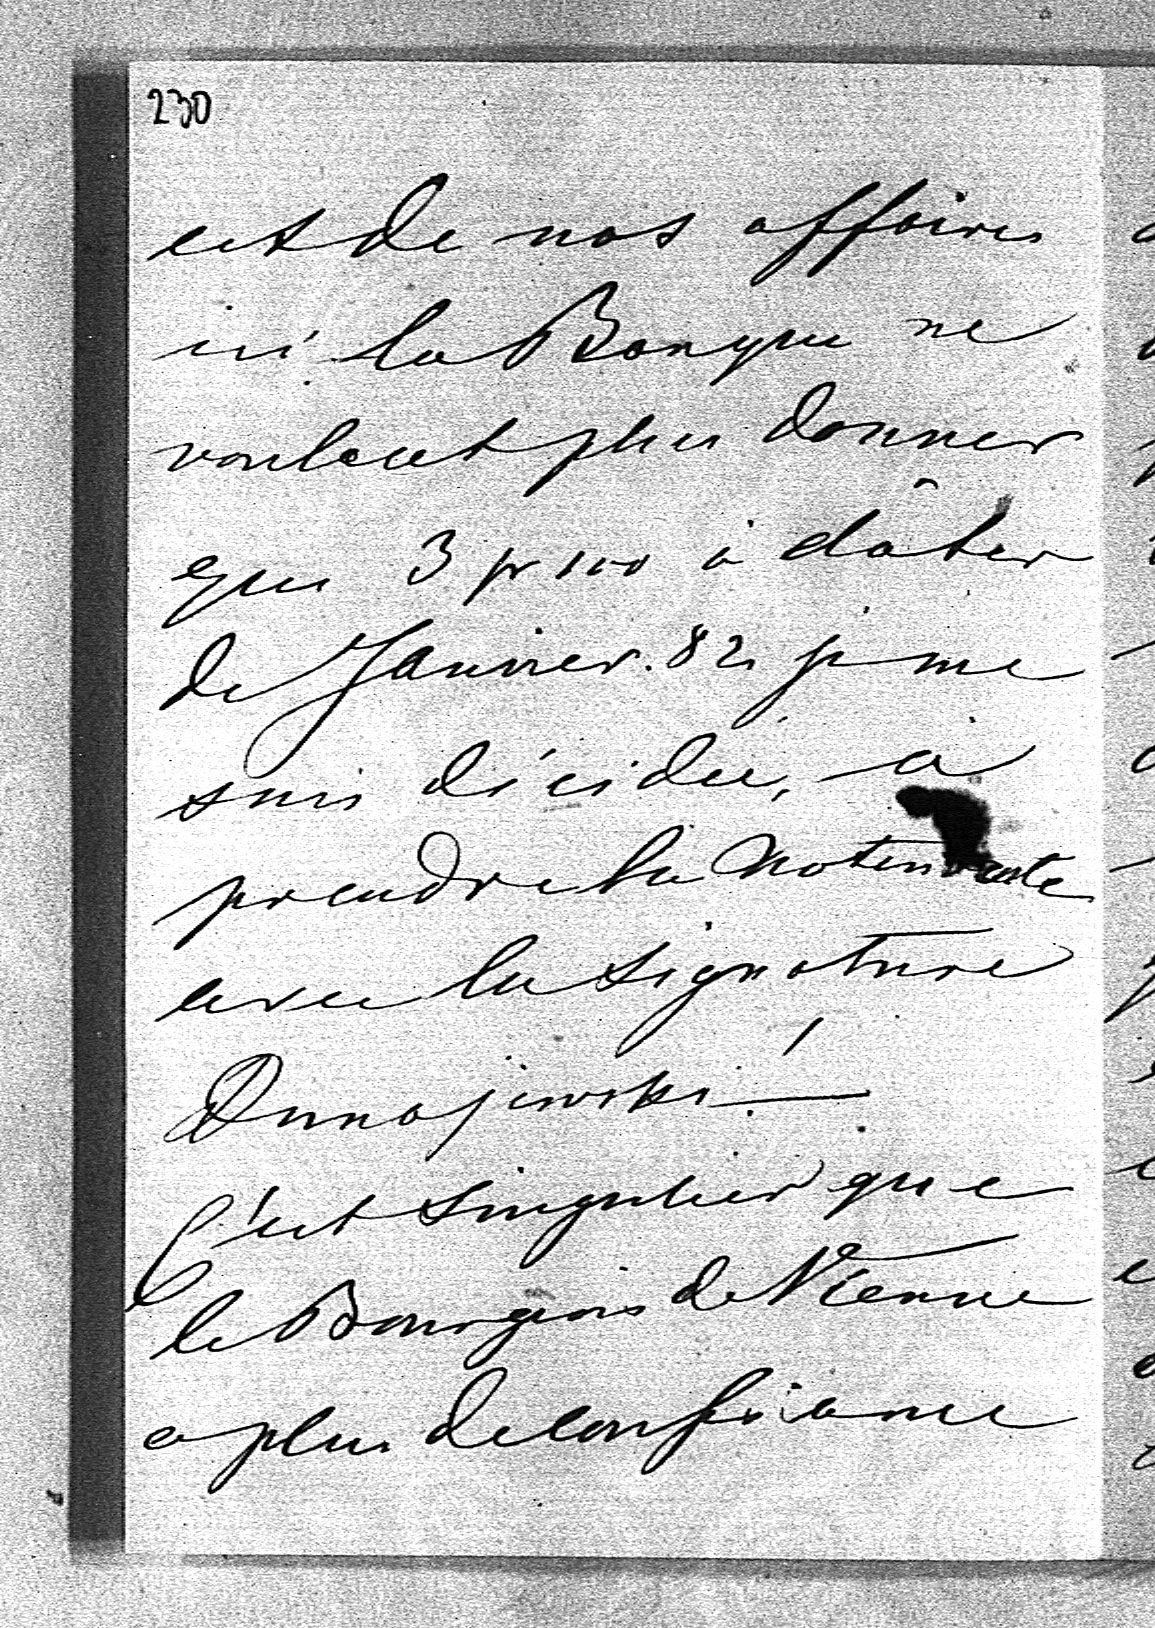 230
est de nos affaires
ici la Banque ne
voulant plus donner
que 3 pr 100 à dâter
de Janvier. 82 je me
suis décidée, à
prendre la Notenrente
avec la signature
Dunajewski! —
C'est singulier que
le Bourgeois de Vienne
a plus de confiance